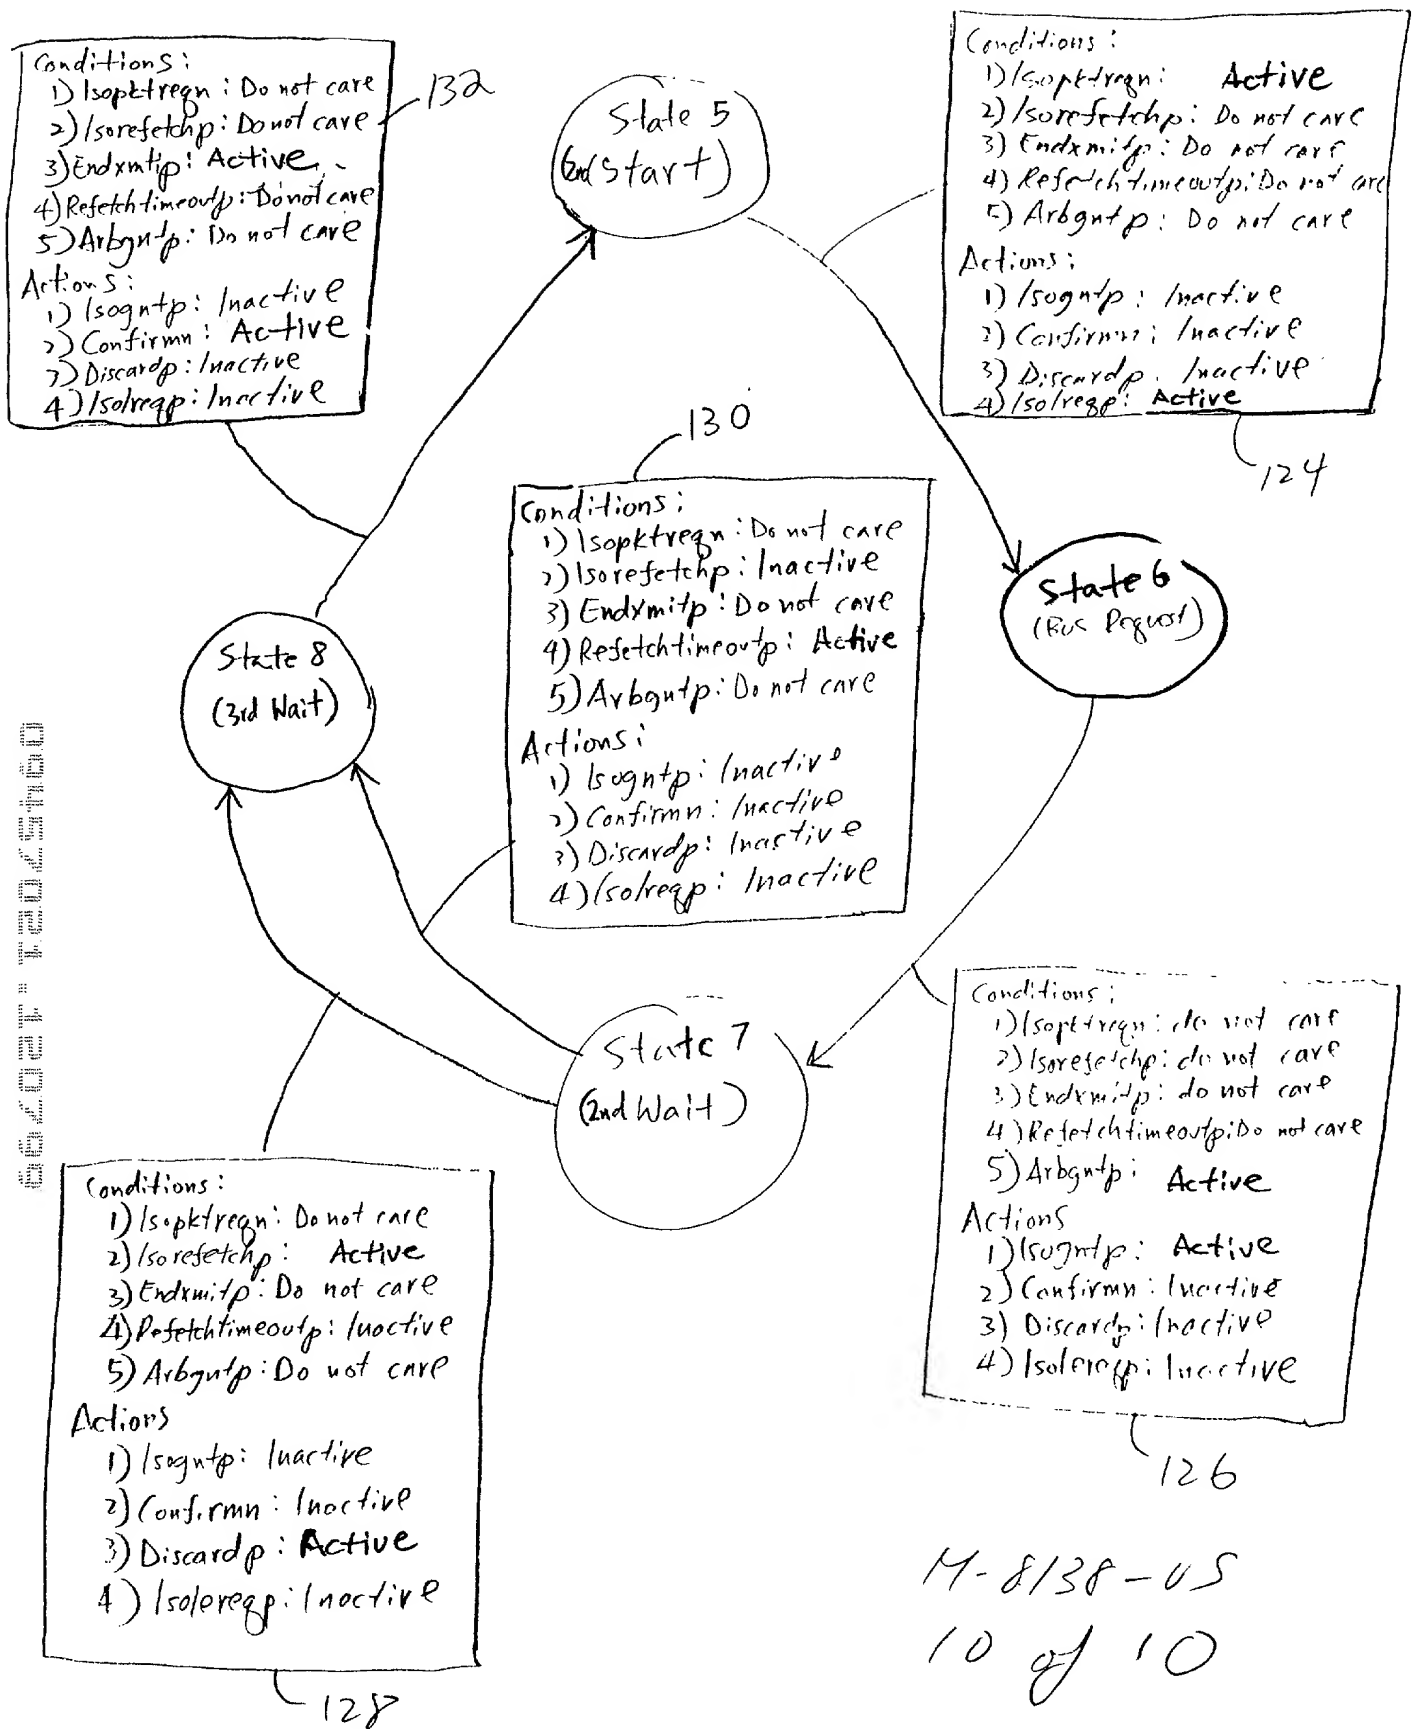 Conditions:
1) Isopktreqn: Do not care
2) Isorefetchp: Do not care
3) Endxmtip: Active
4) Refetchtimeoutp: Do not care
5) Arbgntp: Do not care
Actions:
1) Isogntp: Inactive
2) Confirmn: Active
3) Discardp: Inactive
4) Isolreqp: Inactive
132
State 5
(2nd Start)
Conditions:
1) Isopktreqn: Active
2) Isorefetchp: Do not care
3) Endxmitp: Do not care
4) Refetchtimeoutp: Do not care
5) Arbgntp: Do not care
Actions:
1) Isogntp: Inactive
2) Confirmn: Inactive
3) Discardp. Inactive
4) Isolreqp: Active
124
130
Conditions:
1) Isopktreqn: Do not care
2) Isorefetchp: Inactive
3) Endxmitp: Do not care
4) Refetchtimeoutp: Active
5) Arbgntp: Do not care
Actions:
1) Isogntp: Inactive
2) Confirmn: Inactive
3) Discardp: Inactive
4) Isolreqp: Inactive
State 6
(Bus Request)
State 8
(3rd Wait)
State 7
(2nd Wait)
09457021.120799
Conditions:
1) Isopktreqn: do not care
2) Isorefetchp: do not care
3) Endxmitp: do not care
4) Refetchtimeoutp: Do not care
5) Arbgntp: Active
Actions
1) Isogntp: Active
2) Confirmn: Inactive
3) Discardp: Inactive
4) Isolereqp: Inactive
126
Conditions:
1) Isopktreqn: Do not care
2) Isorefetchp: Active
3) Endxmitp: Do not care
4) Refetchtimeoutp: Inactive
5) Arbgntp: Do not care
Actions
1) Isogntp: Inactive
2) Confirmn: Inactive
3) Discardp: Active
4) Isolereqp: Inactive
128
M-8138-US
10 of 10